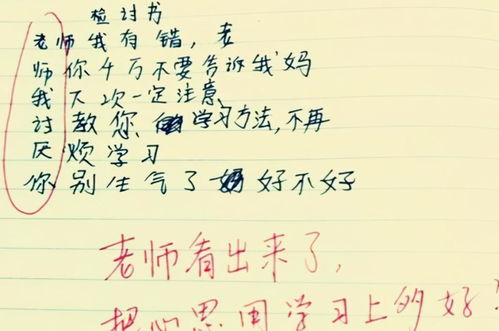 检讨书
老师我有错,老
师你千万不要告诉我妈
我下次一定注意,
讨教您的学习方法,不再
厌烦学习
你别生气了好不好
老师看出来了,
把心思用学习上多好